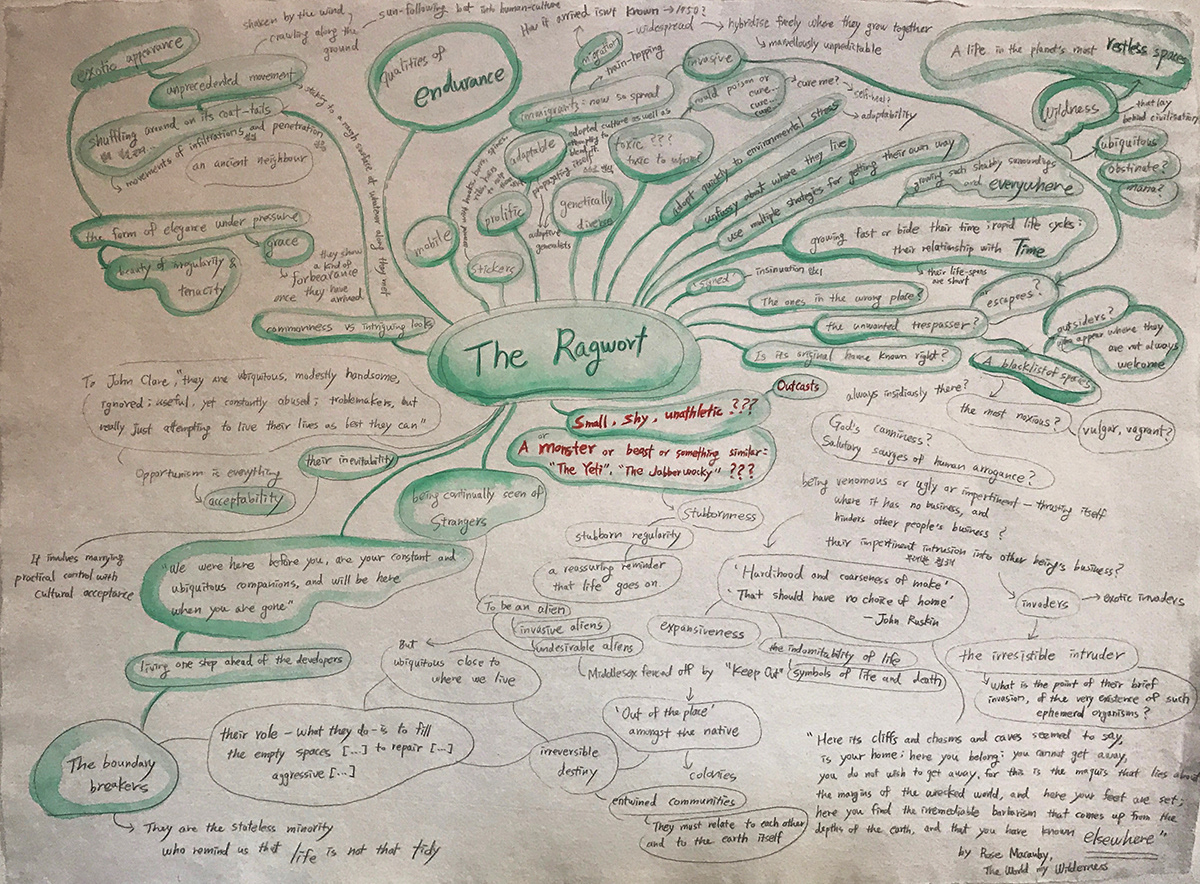 shaken by the wind,
crawling along the
ground
sun-following but into human-culture
How it arrived isn't known → 1950?
exotic appearance
unprecedented movement
shuffling around on its coat-tails
movements of infiltrations and penetration
an ancient neighbour
making to a rough surface of whatever along they met
the form of elegance under pressure
grace
beauty of irregularity &
tenacity
they show
a kind of
forbearance
once they have
arrived
commonness vs intriguing looks
Qualities of
endurance
migration
widespread
hybridise freely where they grow together
marvellously unpredictable
train-hopping
immigrants: now so spread
invasive
could poison or
cure...
cure...
cure...
cure me?
self-heal?
adaptability
toxic ???
toxic to whom?
adaptable
adopted culture as well as
propagating itself
adaptive
generalists
genetically
diverse
prolific
mobile
stickers
adapt quickly to environmental stress
unfussy about where they live
use multiple strategies for getting their own way
A life in the planet's most restless spaces
wildness
that lay
behind civilisation
ubiquitous
obstinate?
mama?
growing such shabby surroundings
and everywhere
growing fast or bide their time; rapid life cycles;
their relationship with Time
their life-spans
are short
'signed'
insinuation
The ones in the wrong place?
or
escapees?
the unwanted trespasser?
Is its original home known right?
outsiders?
appear where they
are not always
welcome
A blacklist of spaces
the most noxious?
vulgar, vagrant?
The Ragwort
Outcasts
Small, shy, unathletic ???
or
A monster or beast or something similar:
"The Yeti", "The Jabberwocky" ???
always insidiously there?
God's canniness?
Salutory scurges of human arrogance?
being venomous or ugly or impertinent – thrusing itself
where it has no business, and
hinders other people's business?
their impertinent intrusion into other being's business?
To John Clare, "they are ubiquitous, modestly handsome,
ignored; useful, yet constantly abused; troblemakers, but
really just attempting to live their lives as best they can"
Opportunism is everything
acceptability
their inevitability
being continually seen of
Strangers
It involves marrying
practical control with
cultural acceptance
"We were here before you, are your constant and
ubiquitous companions, and will be here
when you are gone"
living one step ahead of the developers
The boundary
breakers
They are the stateless minority
who remind us that life is not that tidy
stubbornness
stubborn regularity
a reassuring reminder
that life goes on
'Hardihood and coarseness of make'
'That should have no choice of home'
– John Ruskin
invaders
exotic invaders
To be an alien
invasive aliens
undesirable aliens
expansiveness
the indomitability of life
symbols of life and death
the irresistible intruder
What is the point of their brief
invasion, of the very existence of such
ephemeral organisms?
But
ubiquitous close to
where we live
Middlesex fenced off by "Keep Out"
'Out of the place'
amongst the native
colonies
their role – what they do – is to fill
the empty spaces [...] to repair [...]
aggressive [...]
irreversible
destiny
entwined communities
They must relate to each other
and to the earth itself
"Here its cliffs and chasms and caves seemed to say,
is your home; here you belong; you cannot get away,
you do not wish to get away, for this is the maquis that lies about
the margins of the wrecked world, and here your feet are set;
here you find the irremediable barbarism that comes up from the
depths of the earth, and that you have known
elsewhere"
by Rose Macaulay,
The World my Wilderness